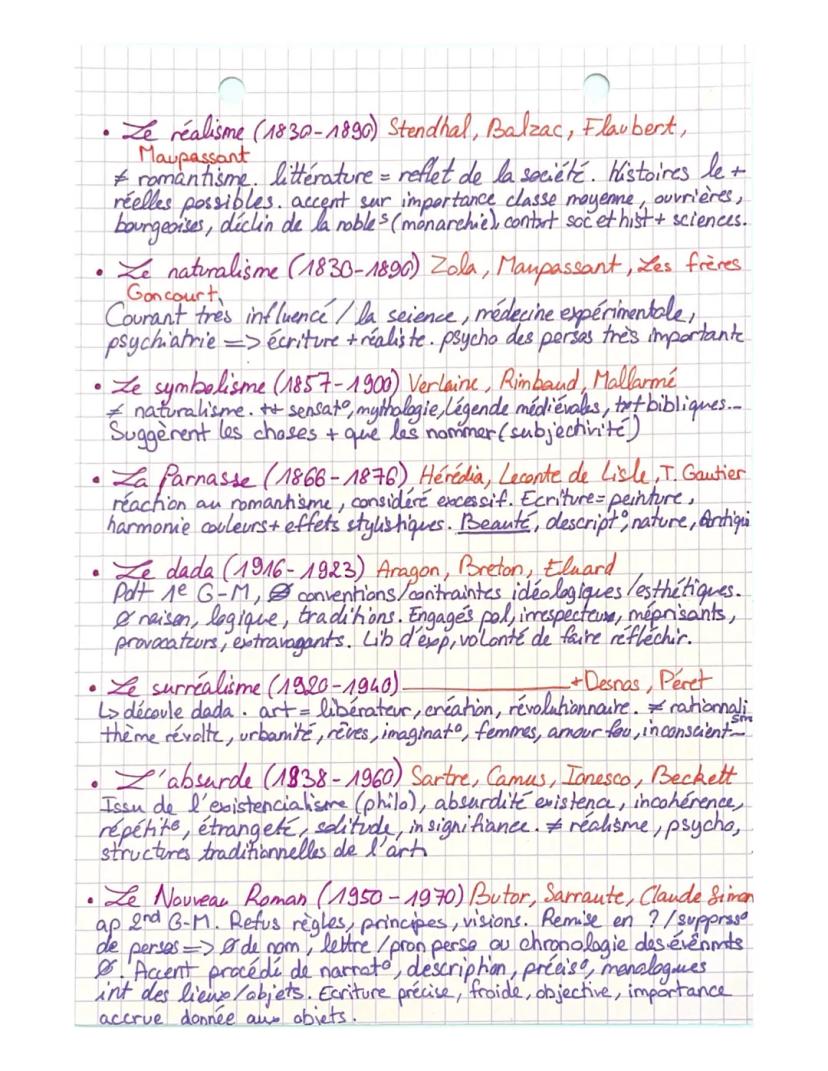 • Le réalisme (1830-1890) Stendhal, Balzac, Flaubert,
Maupassant
≠ romantisme. littérature = reflet de la société. histoires le +
réelles possibles. accent sur importance classe moyenne, ouvrières,
bourgeoises, déclin de la nobles (monarchie), contxt soc et hist + sciences.
• Le naturalisme (1830-1890) Zola, Maupassant, Les frères
Goncourt,
Courant très influencé / la science, médecine expérimentale,
psychiatrie => écriture + réaliste. psycho des persos très importante
• Le symbolisme (1857-1900) Verlaine, Rimbaud, Mallarmé
≠ naturalisme. ++ sensat°, mythologie, Légende médiévales, txt bibliques...
Suggèrent les choses + que les nommer (subjectivité)
• La Parnasse (1866-1876) Hérédia, Leconte de Lisle, T. Gautier
réaction au romantisme, considéré excessif. Ecriture = peinture,
harmonie couleurs + effets stylistiques. Beauté, descript°, nature, Antiqui
• Le dada (1916-1923) Aragon, Breton, Eluard
Pdt 1e G-M, Ø conventions/contraintes idéologiques/esthétiques.
Ø raison, logique, traditions. Engagés pol, irrespecteux, méprisants,
provocateurs, extravagants. Lib d'exp, volonté de faire réfléchir.
• Le surréalisme (1920-1940) + Desnos, Péret
↳ découle dada. art = libérateur, création, révolutionnaire. ≠ rationnali
sm
thème révolte, urbanité, rêves, imaginat°, femmes, amour fou, inconscient...
• L'absurde (1938-1960) Sartre, Camus, Ionesco, Beckett
Issu de l'existencialisme (philo), absurdité existence, incohérence,
répétit°, étrangeté, solitude, insignifiance. ≠ réalisme, psycho,
structures traditionnelles de l'art
• Le Nouveau Roman (1950-1970) Butor, Sarraute, Claude Simon
ap 2nd G-M. Refus règles, principes, visions. Remise en ? / suppress°
de persos => Ø de nom, lettre / pron perso ou chronologie des évènmts
Ø. Accent procédé de narrat°, description, précis°, monologues
int des lieux/objets. Ecriture précise, froide, objective, importance
accrue donnée aux objets.